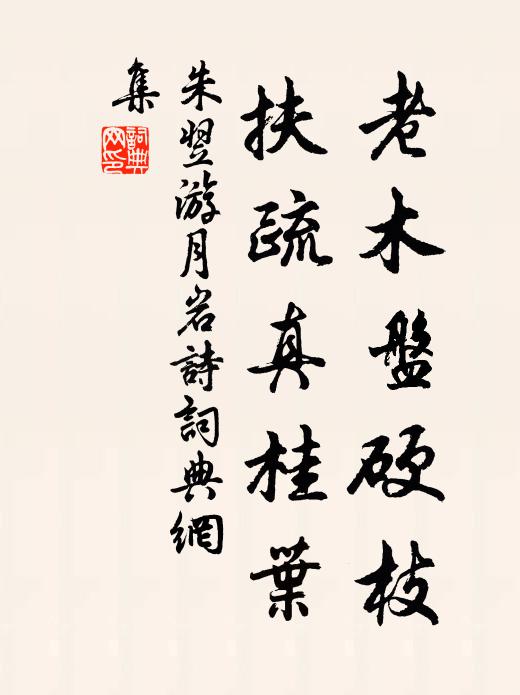 老木盤硬枝
扶疏真桂葉
朱翌游月岩詩詞典網
集
詞典
网印